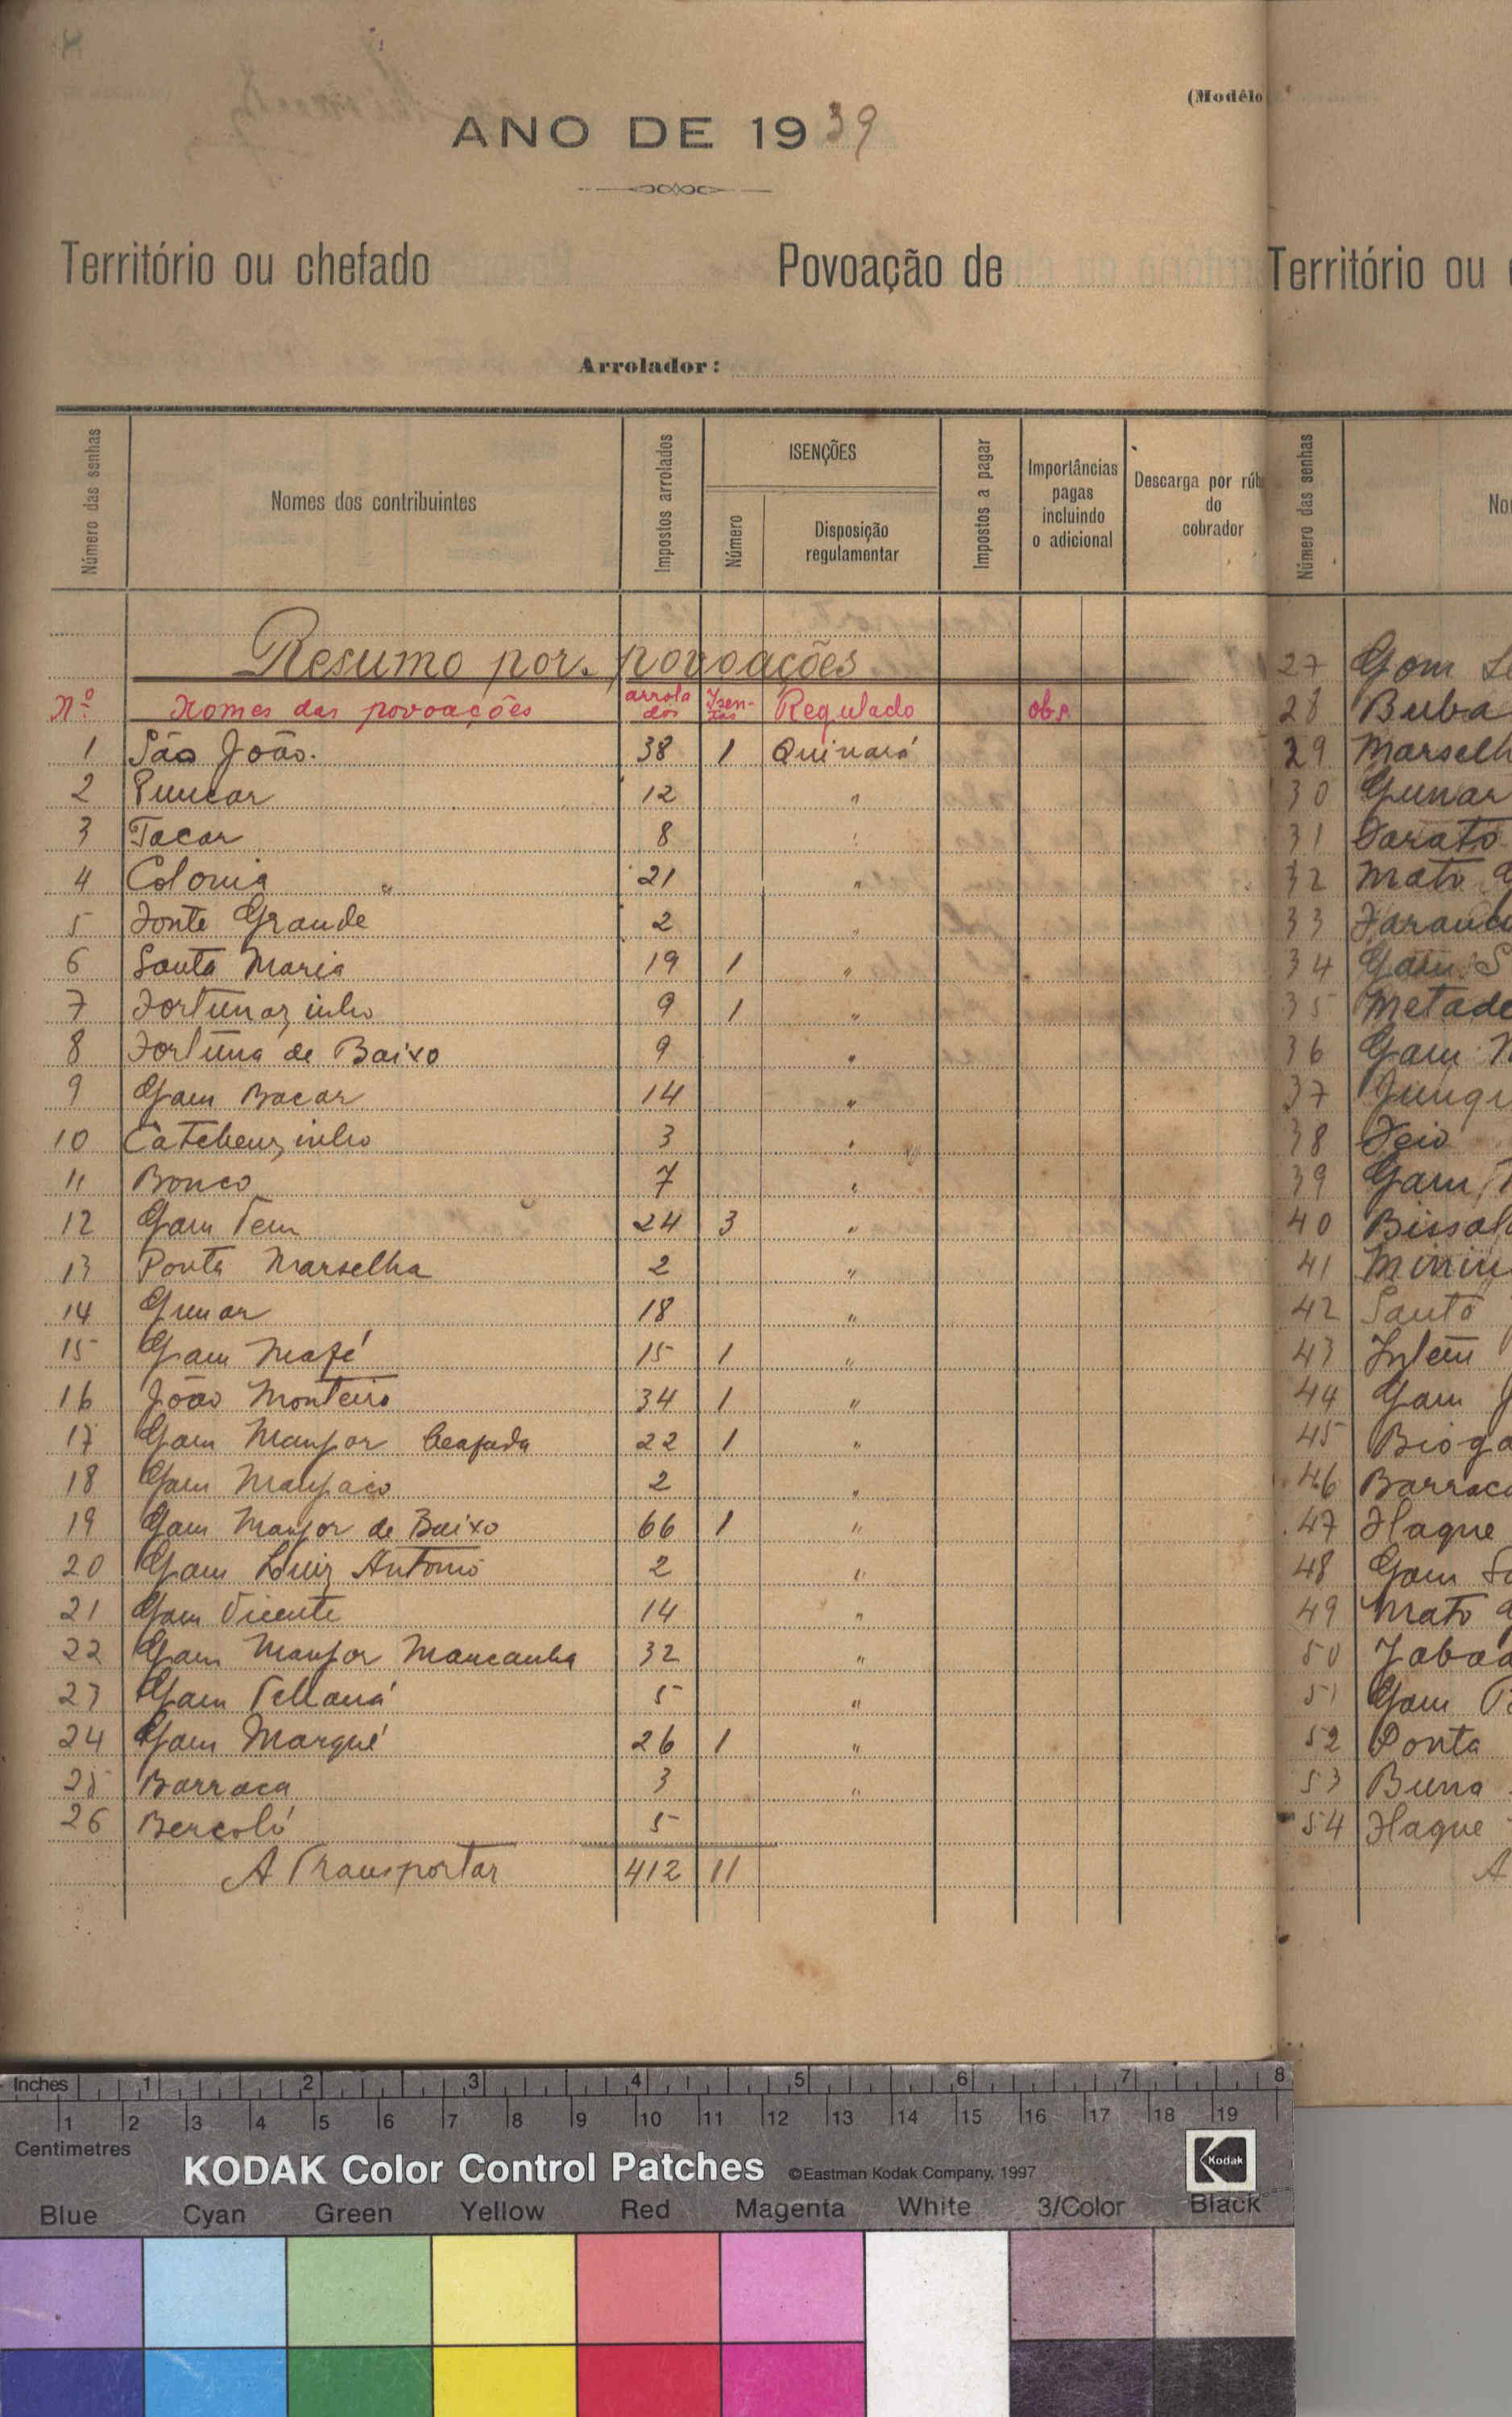 (Modêlo
ANO DE 1939
Território ou chefado
Povoação de
Território ou
Arrolador:
Número das senhas
Nomes dos contribuintes
Impostos arrolados
ISENÇÕES
Número
Disposição
regulamentar
Impostos a pagar
Importâncias
pagas
incluindo
o adicional
Descarga por rúb
do
cobrador
Número das senhas
Resumo por povoações
Nº Nomes das povoações arrolados Isentos Regulado obs.
1 São João. 38 1 Quinará
2 12 "
3 Tacar 8 "
4 Colonia " 21 "
5 Fonte Grande 2 "
6 Santa Maria 19 1 "
7 Fortunazinho 9 1 "
8 Fortuna de Baixo 9 "
9 Gam Bacar 14 "
10 Catcheuzinho 3 "
11 Bonco 7 "
12 Gam Tem 24 3 "
13 Ponta Marselha 2 "
14 Gunar 18 "
15 Gam Mafé 15 1 "
16 João Monteiro 34 1 "
17 Gam Manjor beafada 22 1 "
18 Gam 2 "
19 Gam Manjor de Baixo 66 1 "
20 Gam Luiz Antonio 2 "
21 Gam Vicente 14 "
22 Gam Manjor Mancanha 32 "
23 Gam 5 "
24 Gam Marqué 26 1 "
25 Barraca 3 "
26 Bercoló 5
A Transportar 412 11
27 Gam
28 Buba
29 Marselh
30 Gunar
31
32 Mato
33
34 Gam S
35 Metade
36 Gam
37
38
39 Gam
40
41
42 Santo
43
44 Gam
45
46 Barraca
47 Flaque
48 Gam
49 Mato
50
51 Gam
52 Ponta
53 Buna
54 Flaque
A
Inches 1 2 3 4 5 6 7 8
1 2 3 4 5 6 7 8 9 10 11 12 13 14 15 16 17 18 19
Centimetres
KODAK Color Control Patches ©Eastman Kodak Company, 1997 Kodak
Blue Cyan Green Yellow Red Magenta White 3/Color Black